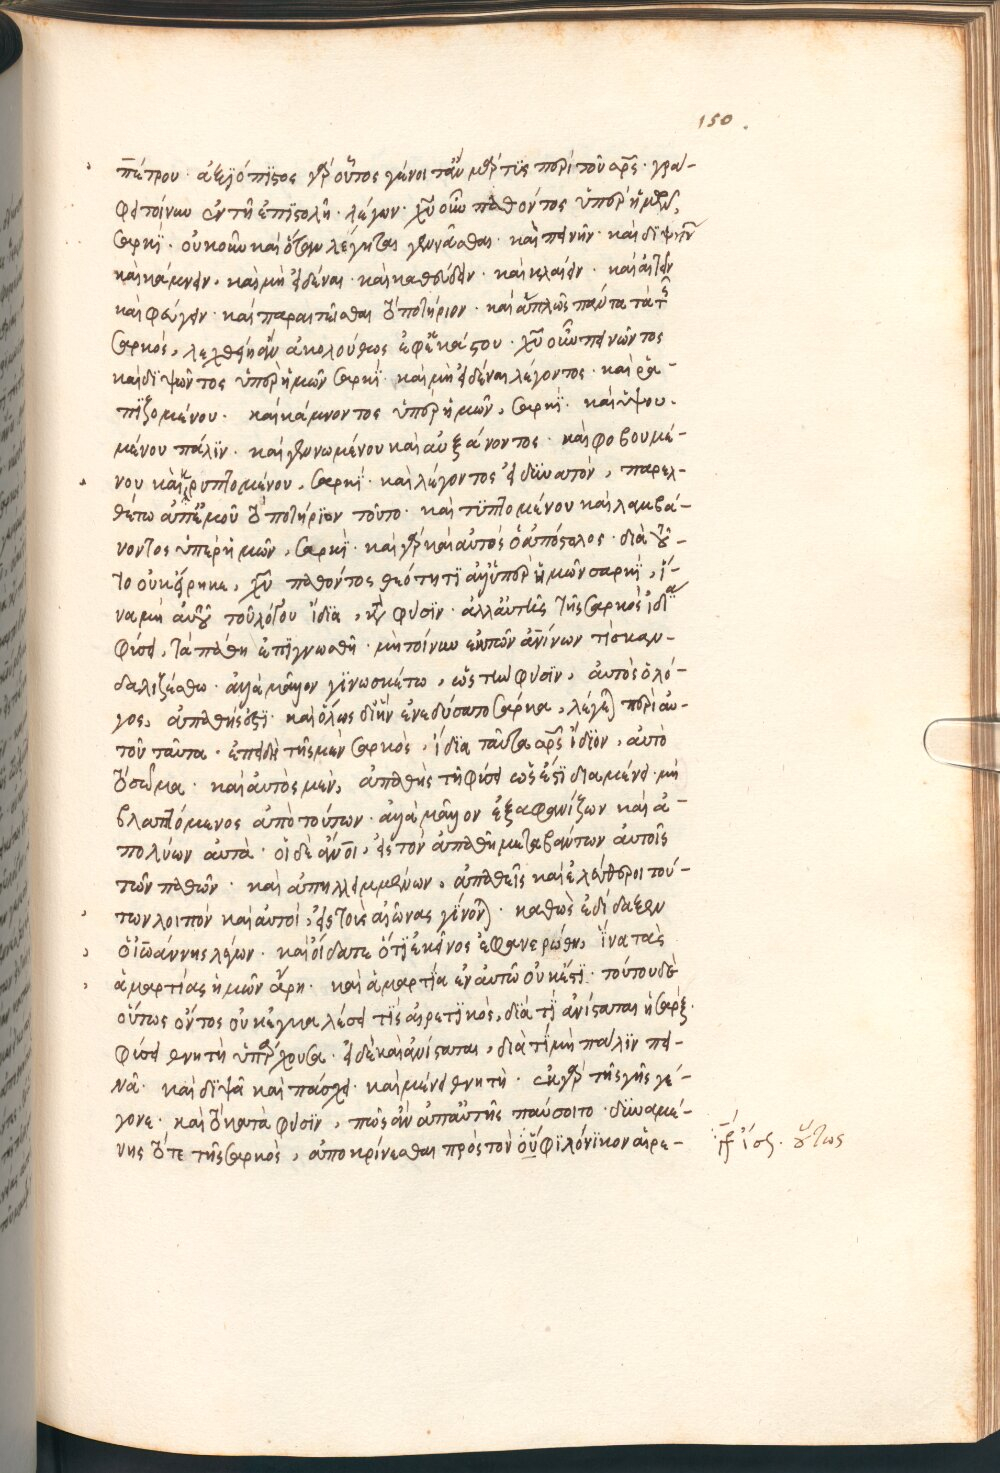 150.
πέτρου· ἀξιόπιστος γὰρ οὗτος γένοιτ' ἂν μάρτυς περὶ τοῦ σρς· γρά-
φει τοίνυν ἐν τῇ ἐπιστολῇ λέγων· χυ οὖν παθόντος ὑπὲρ ἡμῶν,
σαρκί· οὐκοῦν καὶ ὅταν λέγηται πεινᾶν· καὶ διψῆν
καὶ κάμνειν· καὶ μὴ εἰδέναι· καὶ καθεύδειν· καὶ κλαίειν· καὶ αἰτεῖν
καὶ φεύγειν· καὶ παραιτεῖσθαι τὸ ποτήριον· καὶ ἁπλῶς πάντα τὰ τῆς
σαρκός, λεχθείη ἂν ἀκολούθως ἐφ' ἑκάστου· χυ οὖν πεινῶντος
καὶ διψῶντος ὑπὲρ ἡμῶν σαρκί· καὶ μὴ εἰδέναι λέγοντος· καὶ ῥα-
πιζομένου· καὶ κάμνοντος ὑπὲρ ἡμῶν, σαρκί· καὶ ὑψου-
μένου πάλιν· καὶ γεννωμένου καὶ αὐξάνοντος· καὶ φοβουμέ-
νου καὶ κρυπτομένου, σαρκί· καὶ λέγοντος εἰ δυνατὸν, παρελ-
θέτω ἀπ' ἐμοῦ τὸ ποτήριον τοῦτο· καὶ τυπτομένου καὶ λαμβά-
νοντος ὑπὲρ ἡμῶν, σαρκί· καὶ γὰρ καὶ αὐτὸς ὁ ἀπόστολος· διὰ τοῦ-
το οὐκ εἴρηκε, χυ παθόντος θεότητι ἀλλ' ὑπὲρ ἡμῶν σαρκί, ἵ-
να μὴ αὐτοῦ τοῦ λόγου ἴδια, κατὰ φύσιν· ἀλλ' αὐτῆς τῆς σαρκὸς ἴδια
φύσει, τὰ πάθη ἐπιγνωσθῇ· μὴ τοίνυν ἐκ τῶν ἀνίνων τὶς σκαν-
δαλιζέσθω· ἀλλὰ μᾶλλον γινωσκέτω, ὡς τὴν φύσιν, αὐτὸς ὁ λό-
γος, ἀπαθής ἐστι· καὶ ὅμως δι' ἣν ἐνεδύσατο σάρκα, λέγεται περὶ αὐ-
τοῦ ταῦτα· ἐπειδὴ τῆς μὲν σαρκὸς, ἴδια ταῦτα σρς ἴδιον, αὐτὸ
τὸ σῶμα· καὶ αὐτὸς μὲν, ἀπαθὴς τῇ φύσει ὡς ἔστι διαμένει· μὴ
βλαπτόμενος ἀπὸ τούτων· ἀλλὰ μᾶλλον ἐξαφανίζων καὶ ἀ-
πολύων αὐτά· οἱ δὲ ἄνοι, εἰς τὸν ἀπαθῆ μεταβάντων αὐτοῖς
τῶν παθῶν· καὶ ἀπηλειμμένων, ἀπαθεῖς καὶ ἐλεύθεροι τού-
των λοιπὸν καὶ αὐτοὶ, εἰς τοὺς αἰῶνας γίνονται· καθὼς ἐδίδαξεν
ὁ ἰωάννης λέγων· καὶ οἴδατε ὅτι ἐκεῖνος ἐφανερώθη, ἵνα τὰς
ἁμαρτίας ἡμῶν ἄρῃ· καὶ ἁμαρτία ἐν αὐτῷ οὐκ ἔστι· τούτου δὲ
οὕτως ὄντος οὐκ ἐγκαλέσει τὶς αἱρετικὸς, διὰ τί ἀνίσταται ἡ σὰρξ·
φύσει θνητὴ ὑπάρχουσα· εἰ δὲ καὶ ἀνίσταται, διὰ τί μὴ πάλιν πει-
νᾷ· καὶ διψᾷ καὶ πάσχει· καὶ μένει θνητή· ἐκ γὰρ τῆς γῆς γέ-
γονε· καὶ τὸ κατὰ φύσιν, πῶς ἂν ἀπ' αὐτῆς παύσοιτο· δυναμέ-
νης τότε τῆς σαρκὸς, ἀποκρίνεσθαι πρὸς τὸν οὐ φιλόνικον αἱρε-
ἴσ. οὕτως